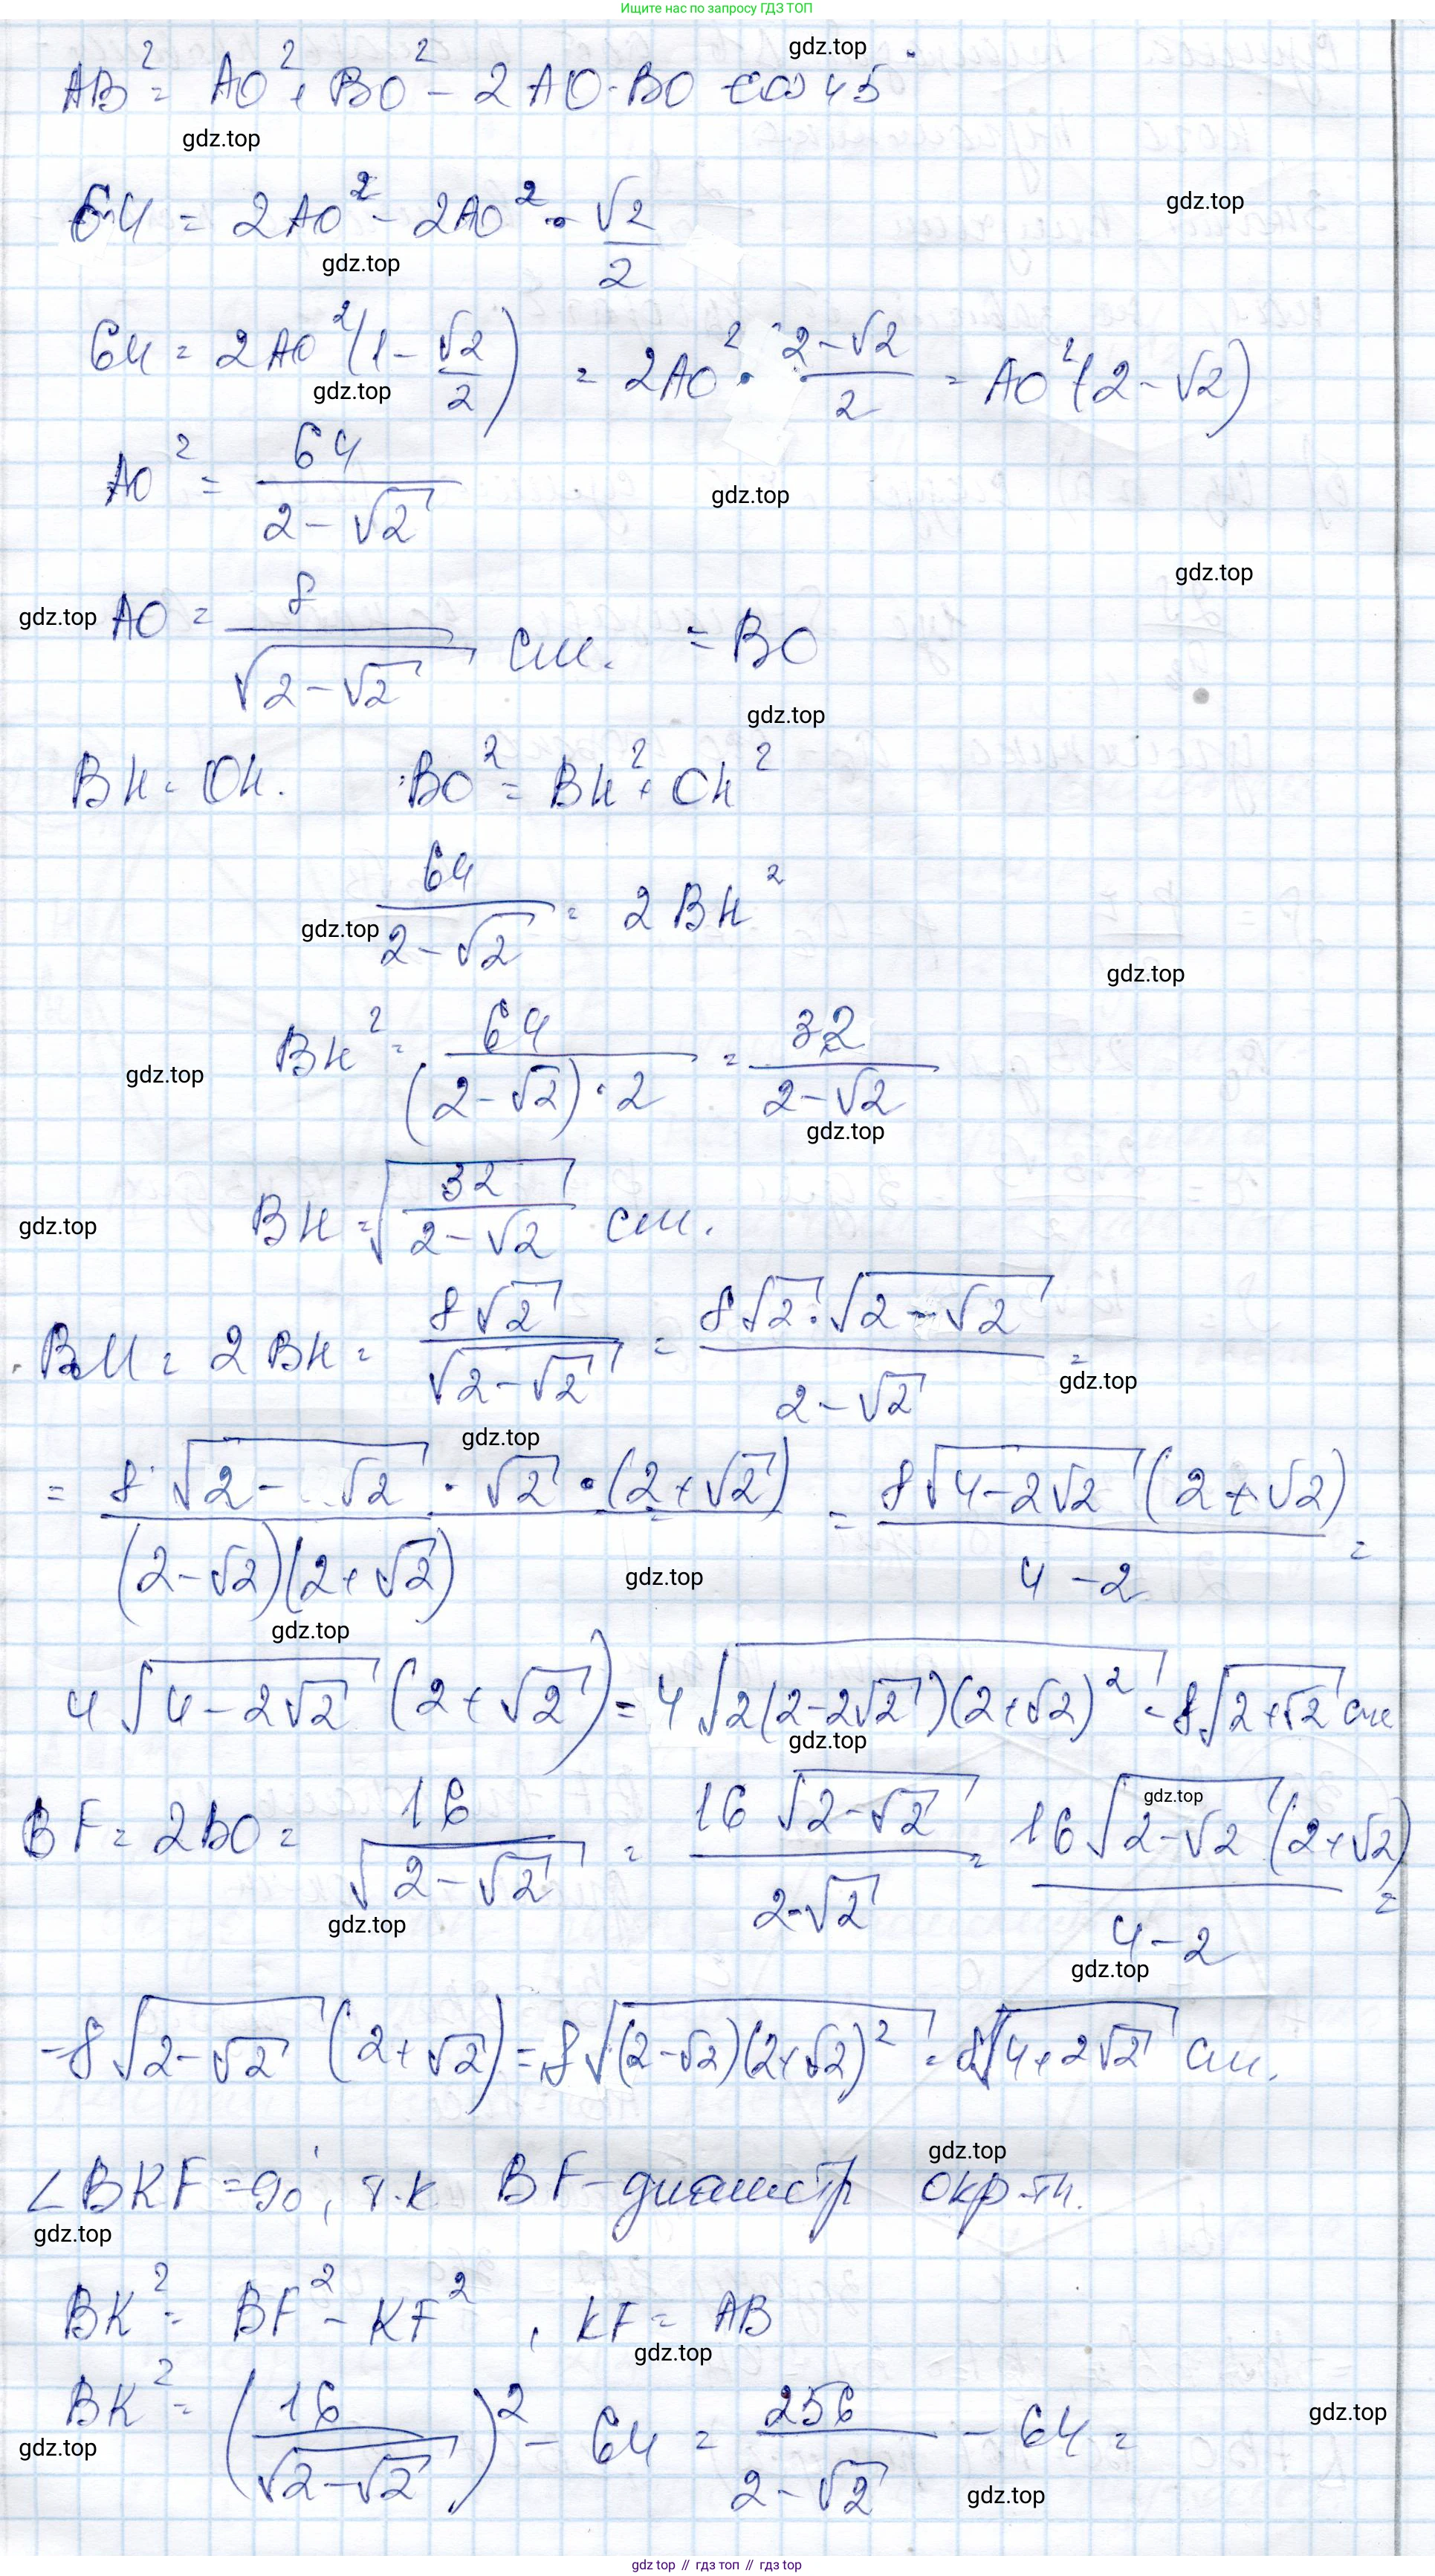 Ищите нас по запросу ГДЗ ТОП
gdz.top
AB² = AO² + BO² - 2 AO · BO · cos 45°
gdz.top
64 = 2AO² - 2AO² · √2/2
gdz.top
gdz.top
64 = 2AO²(1 - √2/2) = 2AO² · (2-√2)/2 = AO²(2-√2)
gdz.top
AO² = 64/(2-√2)
gdz.top
gdz.top
gdz.top AO = 8/√(2-√2) см. = BO
gdz.top
BH = OH. BO² = BH² + OH²
64/(2-√2) = 2BH²
gdz.top
gdz.top
BH² = 64/((2-√2)·2) = 32/(2-√2)
gdz.top
gdz.top
gdz.top BH = √(32/(2-√2)) см.
BM = 2BH = 8√2/√(2-√2) = 8√2·√(2-√2)/(2-√2) =
gdz.top
gdz.top
= 8√(2-√2) · √2 · (2+√2)/((2-√2)(2+√2)) = 8√(4-2√2)(2+√2)/(4-2) =
gdz.top
gdz.top
4√(4-2√2)(2+√2) = 4√(2(2-2√2)(2+√2)²) = 8√(2+√2) см
gdz.top
gdz.top
BF = 2BO = 16/√(2-√2) = 16√(2-√2)/(2-√2) = 16√(2-√2)(2+√2)/(4-2) =
gdz.top
gdz.top
= 8√(2-√2)(2+√2) = 8√((2-√2)(2+√2)²) = 8√(4+2√2) см.
gdz.top
∠BKF = 90°, т.к. BF - диаметр окр-ти.
gdz.top
BK² = BF² - KF², KF = AB
gdz.top
BK² = (16/√(2-√2))² - 64 = 256/(2-√2) - 64 =
gdz.top
gdz.top
gdz.top
gdz top // гдз топ // gdz top